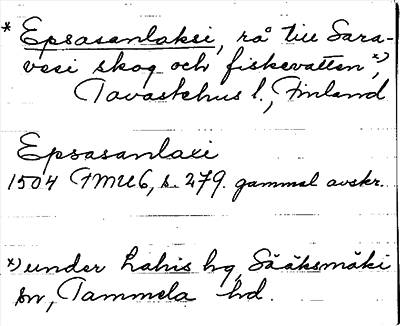 * Epsasanlaksi, rå till Sara-
vesi skog och fiskevatten x),
Tavastehus l., Finland
Epsasanlaxi
1504 FMU6, s. 279. gammal avskr.
x) under Lahis by, Sääksmäki
sn, Tammela hd.